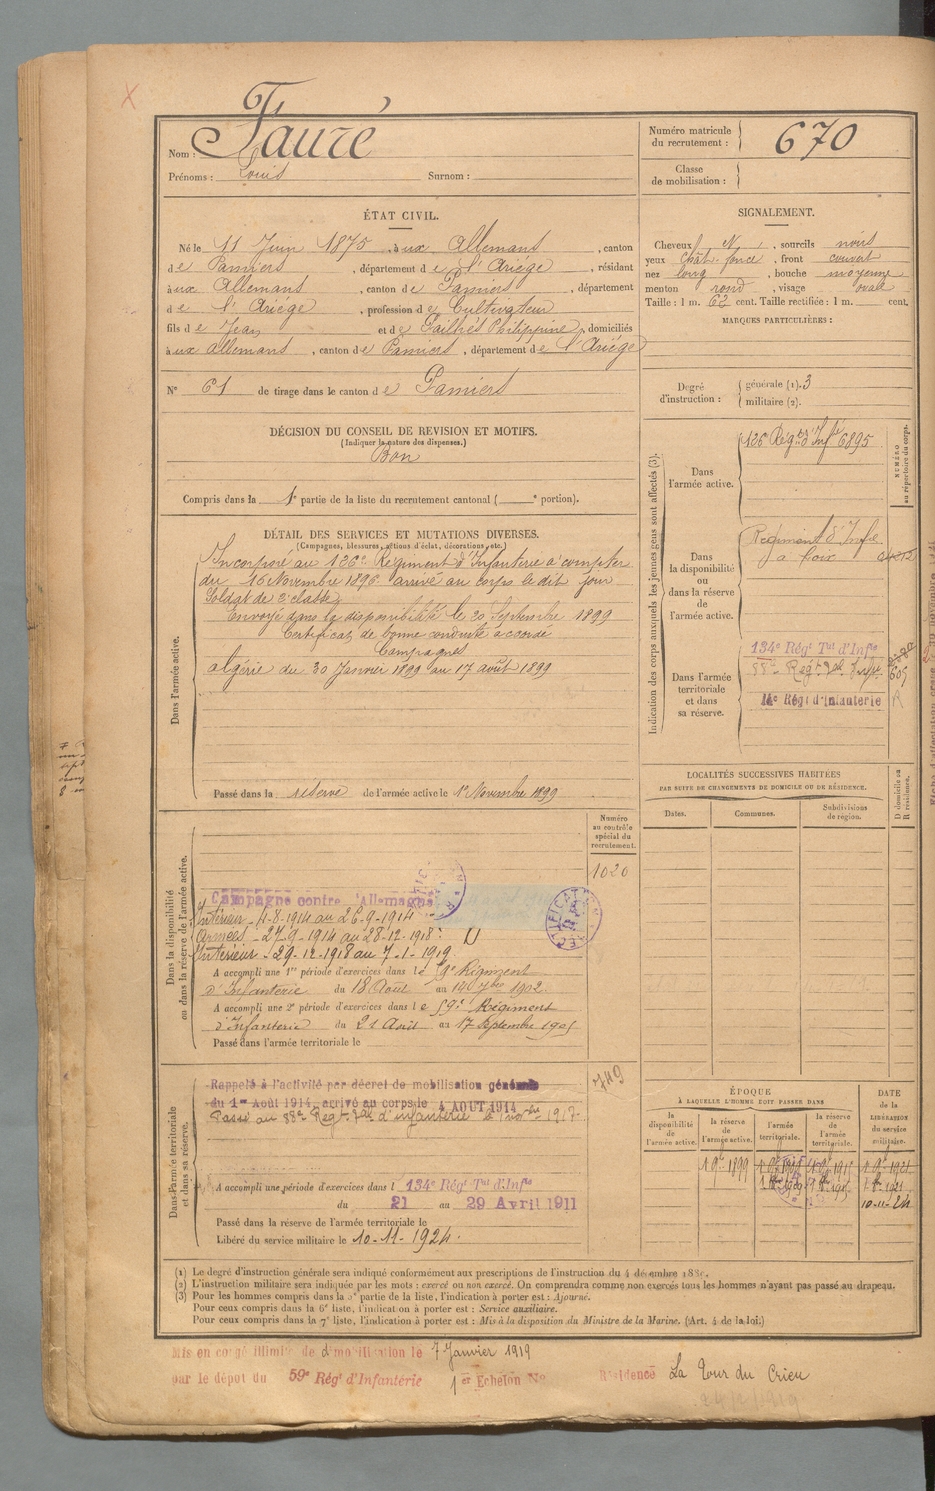 X
Nom : Fauré
Prénoms : Louis Surnom :
Numéro matricule du recrutement : 670
Classe de mobilisation :
ÉTAT CIVIL.
Né le 11 Juin 1875, à ux Allemans, canton
de Pamiers, département de l'Ariége, résidant
à ux Allemans, canton de Pamiers, département
de l'Ariége, profession de Cultivateur
fils de Jean et de Failhés Philippine, domiciliés
à ux Allemans, canton de Pamiers, département de l'Ariége
N° 61 de tirage dans le canton de Pamiers
SIGNALEMENT.
Cheveux N, sourcils noirs
yeux chât. foncé, front couvert
nez long, bouche moyenne
menton rond, visage ovale
Taille : 1 m. 62 cent. Taille rectifiée : 1 m. cent.
MARQUES PARTICULIÈRES :
Degré d'instruction : générale (1). 3
militaire (2).
DÉCISION DU CONSEIL DE REVISION ET MOTIFS.
(Indiquer la nature des dispenses.)
Bon
Compris dans la 1e partie de la liste du recrutement cantonal ( e portion).
DÉTAIL DES SERVICES ET MUTATIONS DIVERSES.
(Campagnes, blessures, actions d'éclat, décorations, etc.)
Dans l'armée active.
Incorporé au 126e Régiment d'Infanterie à compter
du 16 Novembre 1896 arrivé au corps le dit jour
Soldat de 2e classe
Envoyé dans la disponibilité le 20 Septembre 1899
Certificat de bonne conduite accordé
Campagnes
Algérie du 30 Janvier 1899 au 17 août 1899
Passé dans la réserve de l'armée active le 1er Novembre 1899
Indication des corps auxquels les jeunes gens sont affectés (3).
NUMÉRO au répertoire du corps.
Dans l'armée active.
126 Rég. d'Inf. 6895
Dans la disponibilité ou dans la réserve de l'armée active.
Régiment d'Infie
à Foix
Dans l'armée territoriale et dans sa réserve.
134e Régt Tal d'Infie
605
R
14e Régt d'Infanterie
LOCALITÉS SUCCESSIVES HABITÉES
PAR SUITE DE CHANGEMENTS DE DOMICILE OU DE RÉSIDENCE.
Dates. Communes. Subdivisions de région. D domicile ou R résidence.
Dans la disponibilité ou dans la réserve de l'armée active.
Numéro au contrôle spécial du recrutement.
1020
Campagne contre l'Allemagne
Intérieur - 4-8-1914 au 26-9-1914
Armées - 27-9-1914 au 28-12-1918
Intérieur - 29-12-1918 au 7-1-1919
A accompli une 1re période d'exercices dans le Régiment
d'Infanterie du 18 Aout au 14 7bre 1902.
A accompli une 2e période d'exercices dans le 59e Régiment
d'Infanterie du 21 au 17 Septembre 1905
Passé dans l'armée territoriale le
Dans l'armée territoriale et dans sa réserve.
749
Rappelé à l'activité par décret de mobilisation générale
du 1er Août 1914, arrivé au corps le 4 AOUT 1914
Passé au 88e Régt Tal d'infanterie le 1 1917
A accompli une période d'exercices dans l 134e Régt Tal d'Infie
du 21 au 29 Avril 1911
Passé dans la réserve de l'armée territoriale le
Libéré du service militaire le 10-11-1924.
ÉPOQUE
À LAQUELLE L'HOMME DOIT PASSER DANS
la disponibilité de l'armée active. la réserve de l'armée active. l'armée territoriale. la réserve de l'armée territoriale.
DATE de la LIBÉRATION du service militaire.
1899
10-11-24
(1) Le degré d'instruction générale sera indiqué conformément aux prescriptions de l'instruction du 4 décembre
(2) L'instruction militaire sera indiquée par les mots : exercé ou non exercé. On comprendra comme non exercés tous les hommes n'ayant pas passé au drapeau.
(3) Pour les hommes compris dans la 5e partie de la liste, l'indication à porter est : Ajourné.
Pour ceux compris dans la 6e liste, l'indication à porter est : Service auxiliaire.
Pour ceux compris dans la 7e liste, l'indication à porter est : Mis à la disposition du Ministre de la Marine. (Art. 4 de la loi.)
Mis en congé illimité de démobilisation le 7 Janvier 1919
par le dépot du 59e Régt d'Infanterie 1er Echelon No Résidence La Tour du Crieu